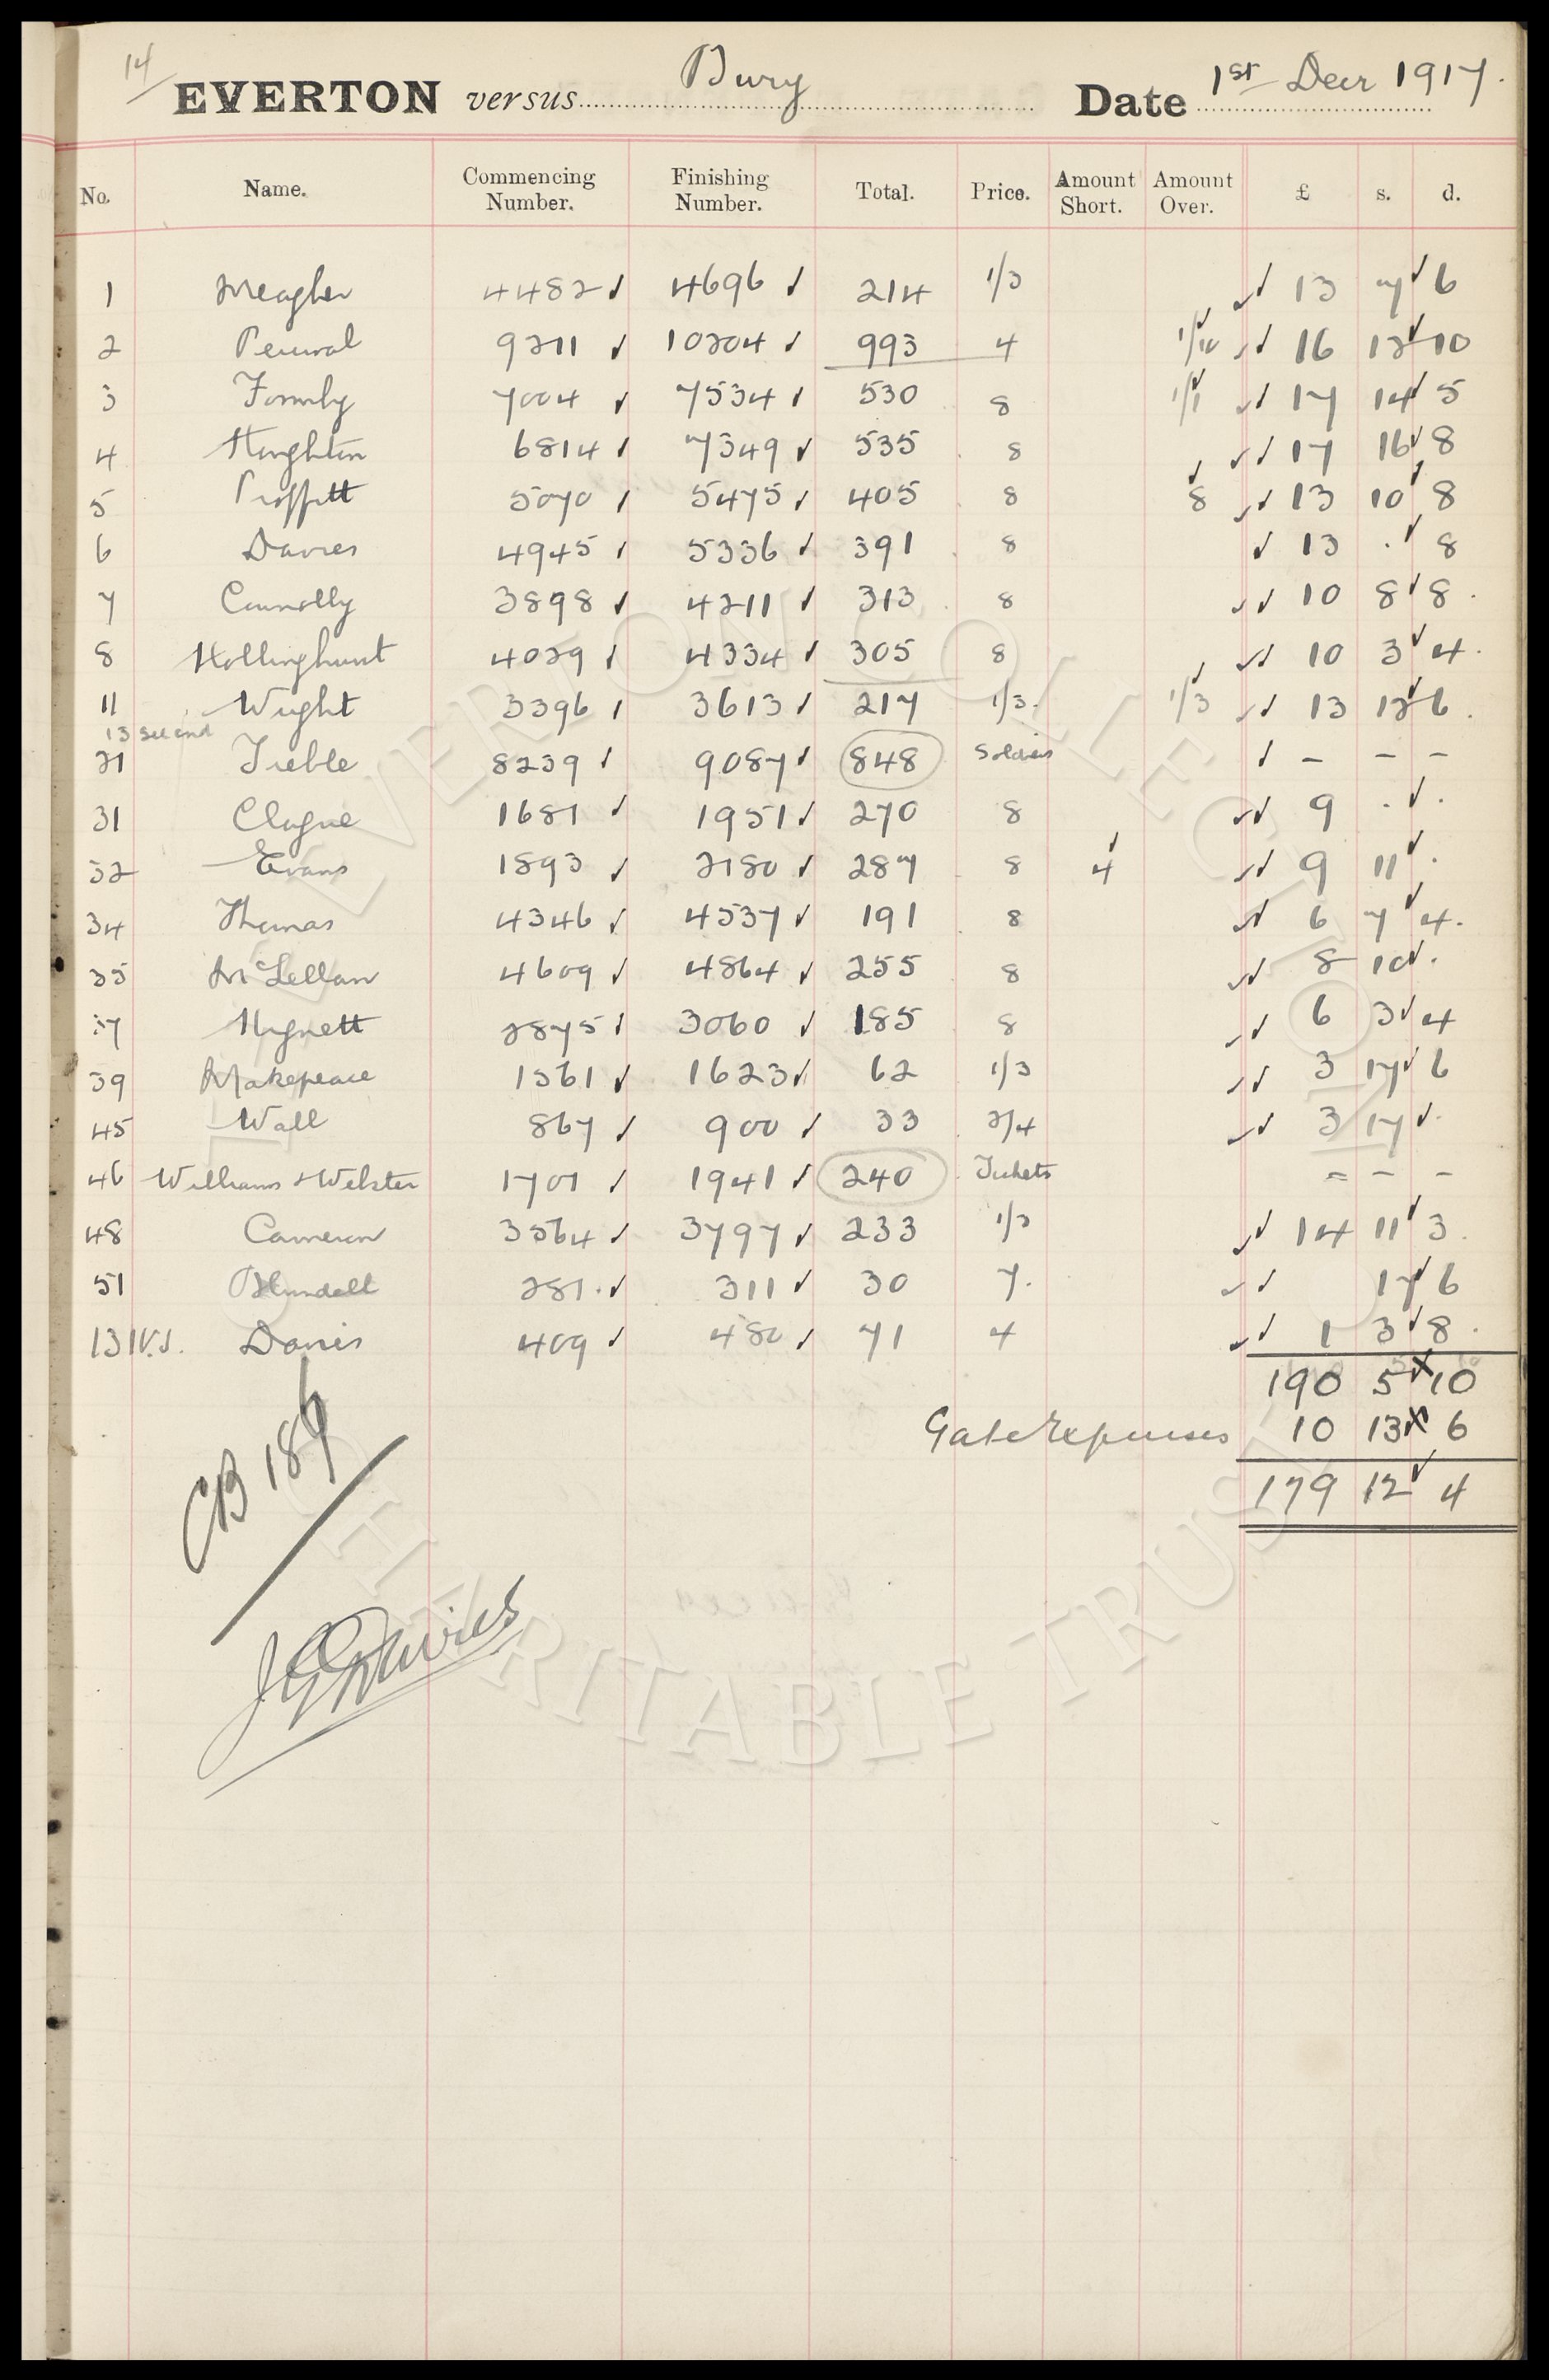 14/
EVERTON versus Bury Date 1st Decr 1917.
No. Name. Commencing Number. Finishing Number. Total. Price. Amount Short. Amount Over. £ s. d.
1 Meagher 4482 ✓ 4696 ✓ 214 1/3 ✓✓ 13 7 ✓ 6
2 Percival 9211 ✓ 10204 ✓ 993 4 1/10 ✓ ✓✓ 16 12 ✓ 10
3 Formby 7004 ✓ 7534 ✓ 530 8 1/1 ✓ ✓✓ 17 14 ✓ 5
4 Houghton 6814 ✓ 7349 ✓ 535 8 ✓✓ 17 16 ✓ 8
5 Proffitt 5070 ✓ 5475 ✓ 405 8 8 ✓ ✓✓ 13 10 ✓ 8
6 Davies 4945 ✓ 5336 ✓ 391 8 ✓ 13 . ✓ 8
7 Connolly 3898 ✓ 4211 ✓ 313 8 ✓✓ 10 8 ✓ 8.
8 Hollinghurst 4029 ✓ 4334 ✓ 305 8 ✓✓ 10 3 ✓ 4.
11 Wright 3396 ✓ 3613 ✓ 217 1/3. 1/3 ✓ ✓✓ 13 12 ✓ 6.
13 second
21 Treble 8239 ✓ 9087 ✓ 848 Soldiers ✓ – – –
31 Clague 1681 ✓ 1951 ✓ 270 8 ✓✓ 9 . ✓ .
32 Evans 1893 ✓ 2180 ✓ 287 8 4 ✓ ✓✓ 9 11 ✓ .
34 Thomas 4346 ✓ 4537 ✓ 191 8 ✓✓ 6 7 ✓ 4.
35 McLellan 4609 ✓ 4864 ✓ 255 8 ✓✓ 8 10 ✓ .
37 Hignett 2875 ✓ 3060 ✓ 185 8 ✓✓ 6 3 ✓ 4
39 Makepeace 1561 ✓ 1623 ✓ 62 1/3 ✓✓ 3 17 ✓ 6
45 Wall 867 ✓ 900 ✓ 33 2/4 ✓✓ 3 17 ✓ .
46 Williams & Webster 1701 ✓ 1941 ✓ 240 Tickets = – –
48 Cameron 3564 ✓ 3797 ✓ 233 1/3 ✓✓ 14 11 ✓ 3.
51 Blundell 281. ✓ 311 ✓ 30 7. ✓✓ 17 ✓ 6
13 Davies 409 ✓ 480 ✓ 71 4 ✓✓ 1 3 ✓ 8.
190 5 10
Gate Expenses 10 13 6
179 12 ✓ 4
CB 186
J G Davies
EVERTON COLLECTION
CHARITABLE TRUST